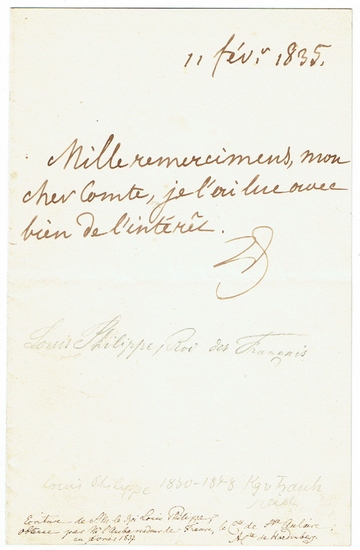 11 févr 1835.
Mille remercimens, mon
cher Comte, je l'ai lue avec
bien de l'intérêt.
Louis Philippe, Roi des Français
Louis Philippe 1830-1848 Kg v Frank
Ecriture de S. M. le Roi Louis Philippe,
obtenue par Mr l'Ambassadeur de France, le Cte de Ste Aulaire,
en février 1837.